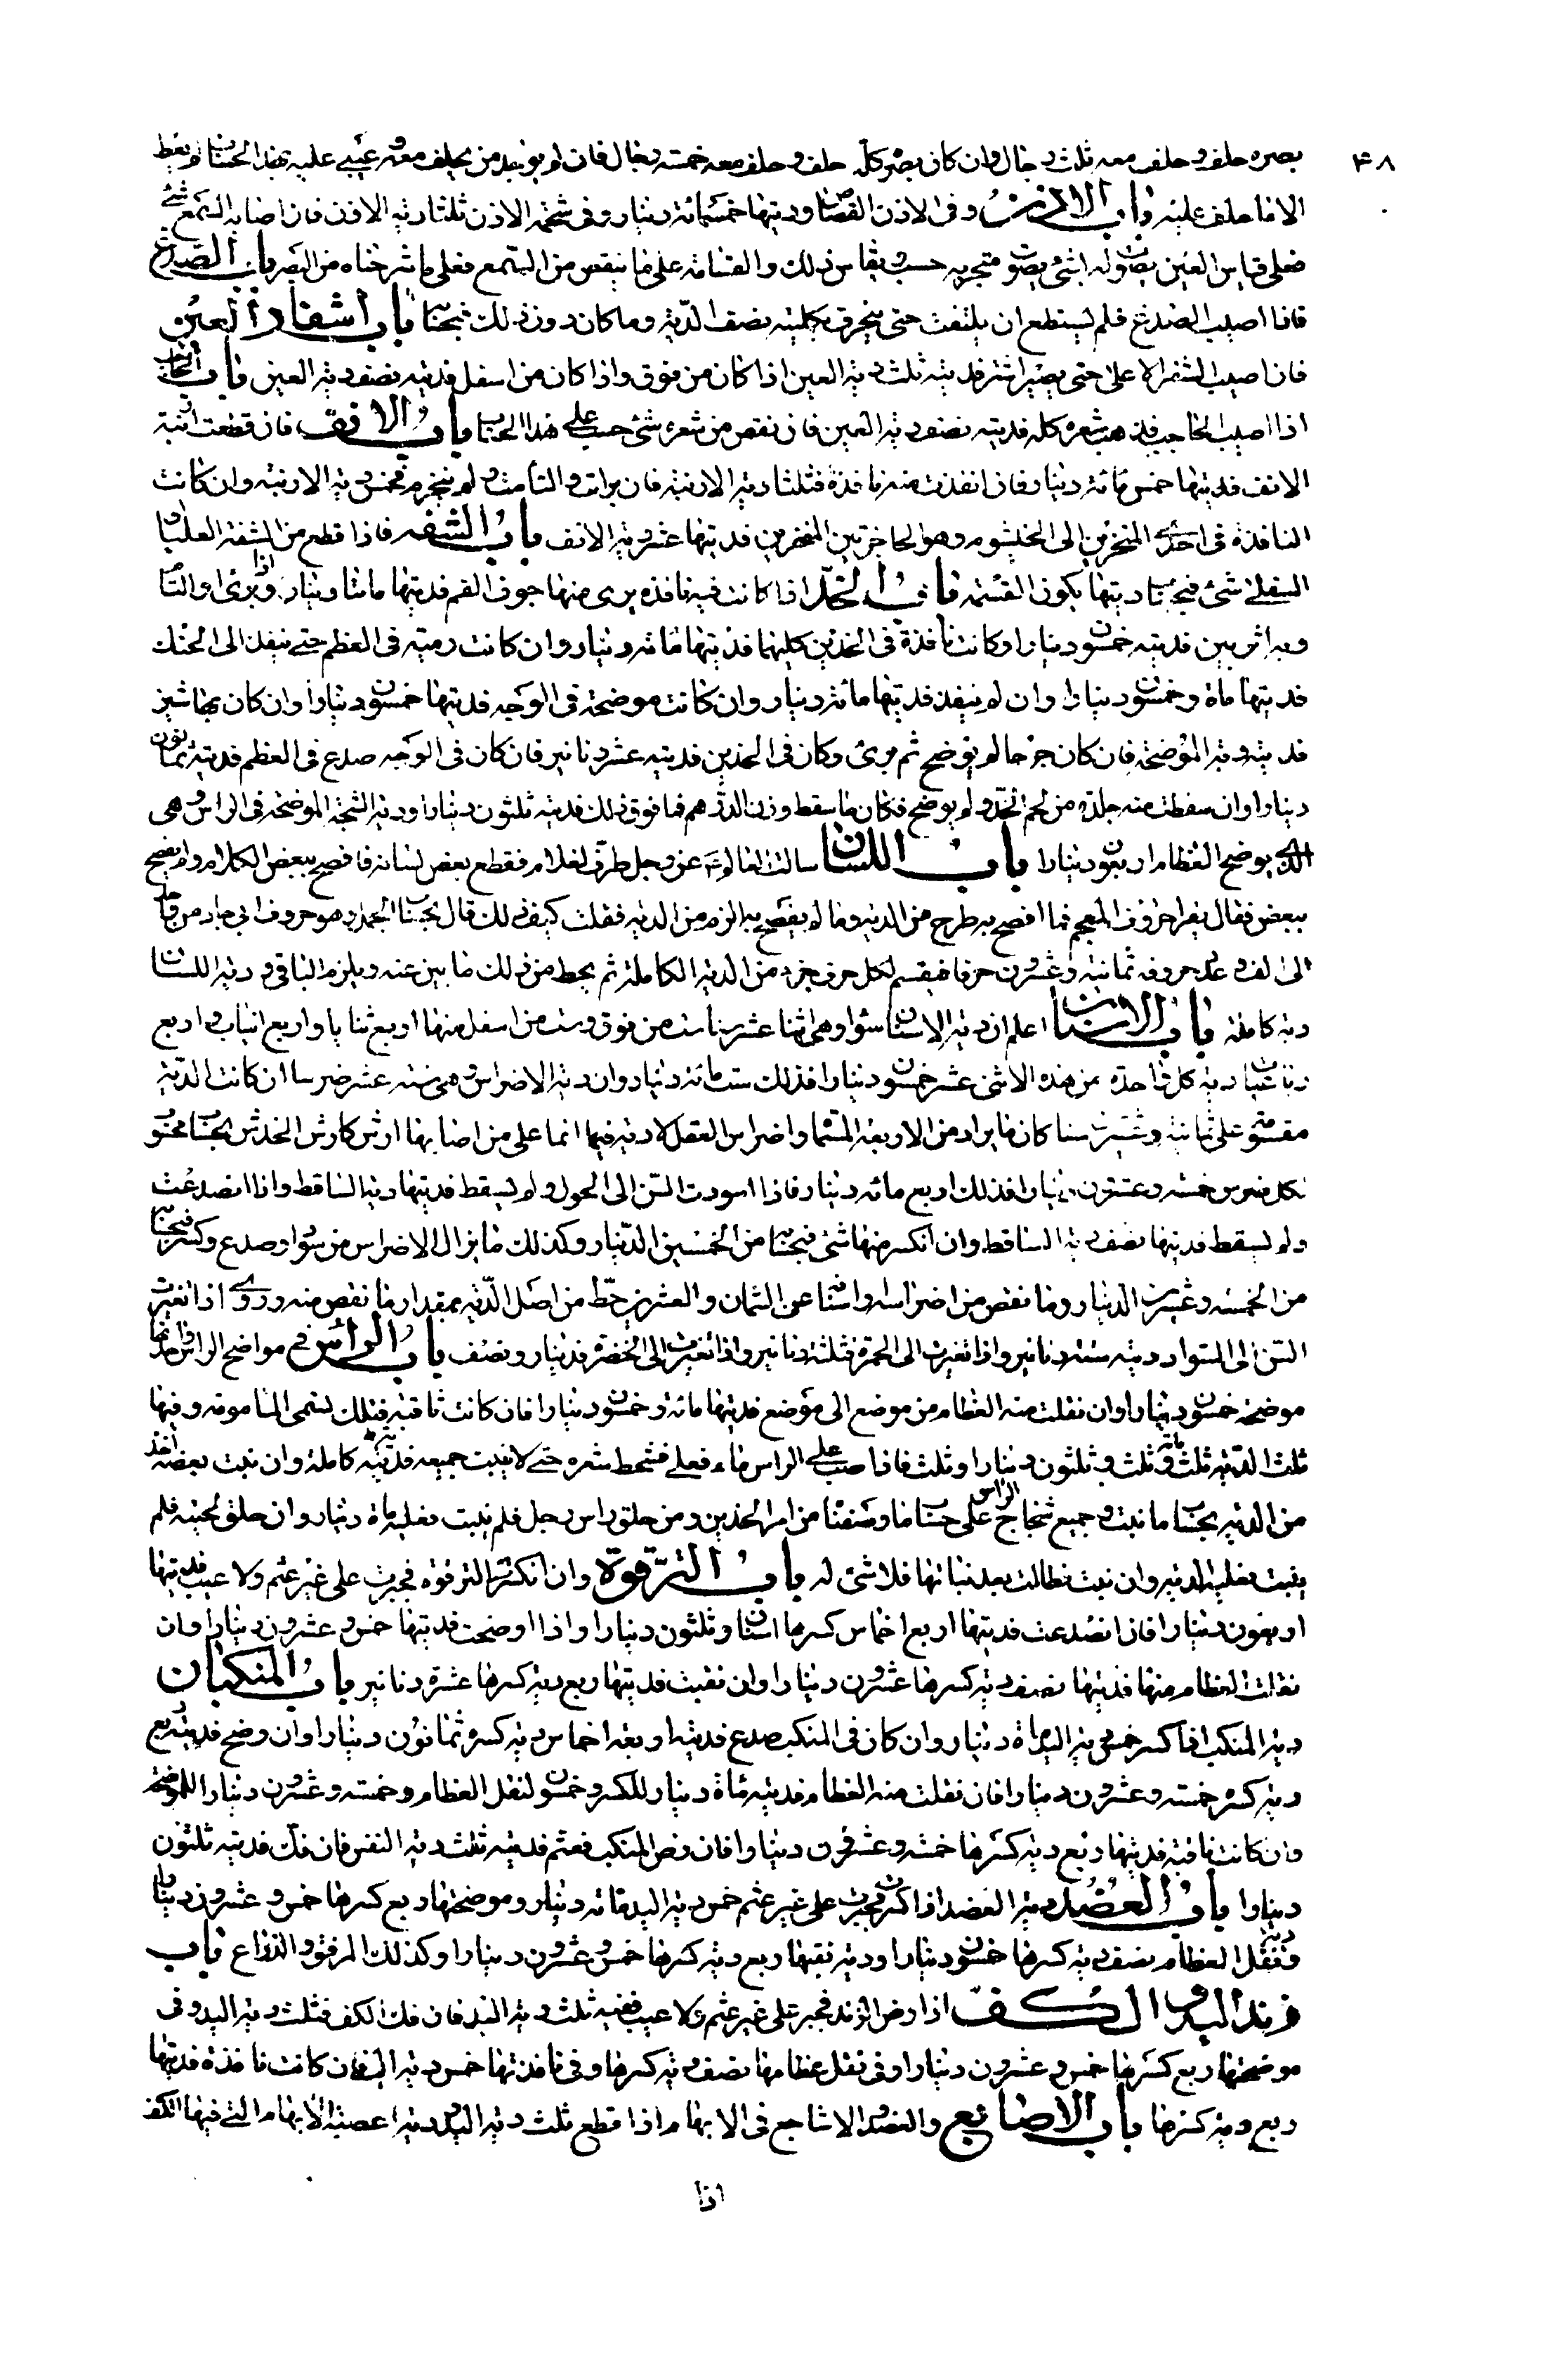 ۴۸
بصره حلف و حلف معه ثلث رجال وان كان بصره كله حلف و حلف معه خمسة رجال فان لم يوجد من يحلف معه عليه بهذا الحساب لم يعط
الا ما حلف عليه باب الاذن وفى الاذن القصاص وديتها خمسمائة دينار وفى شحمة الاذن ثلث دية الاذن فان اصابه السمع شئ
فعلى قياس العين يصوت له بشئ يصوت ويقاس ذلك والقسامة على ما ينقص من السمع فعلى ما شرحناه من البصر باب الصدغ
فاذا اصيب الصدغ فلم يستطع ان يلتفت حتى ينحرف بكليته نصف الدية وما كان دون ذلك فبحسابه باب اشفار العين
فان اصيب الشفر الاعلى حتى يصير اشتر فديته ثلث دية العين اذا كان من فوق واذا كان من اسفل فديته نصف دية العين باب الحاجب
اذا اصيب الحاجب فذهب شعره كله فديته نصف دية العين فان نقص من شعره شئ حسب على هذا الحساب باب الانف فان قطعت ارنبة
الانف فديتها خمس مائة دينار فان انفذت منه نافذة فثلثا دية الارنبة فان برات والتأمت ولم ينخرم فخمس دية الارنبة وان كانت
النافذة فى احدى المنخرين الى الخيشوم وهو الحاجز بين المنخرين فديتها عشر دية الانف باب الشفه فاذا قطع من الشفة العليا او
السفلى شئ فبحساب ديتها يكون القسمة باب الخد اذا كانت فيه نافذه يرى منها جوف الفم فديتها مائتا دينار واذا برئ والتأم
وبه اثر بين فديته خمسون دينارا وكانت نافذة فى الخدين كليهما فديتها مائة دينار وان كانت رمية فى العظم حتى ينفذ الى الحنك
فديتها ماة وخمسون دينارا وان لم ينفذ فديتها مائة دينار وان كانت موضحة فى الوجه فديتها خمسون دينارا وان كان بها شين
فديته دية الموضحة فان كان جرحا لم يوضح ثم برئ وكان فى الخدين فديته عشر دنانير فان كان فى الوجه صدع فى العظم فديته ثمانون
دينارا وان سقطت منه جلدة من لحم الخد ولم يوضح فكان ما سقط وزن الدرهم فما فوق ذلك فديته ثلثون دينارا ودية الشجة الموضحة فى الراس وهى
التى يوضح العظام اربعون دينارا باب اللسان سالت العالم ع عن رجل طرف لغلام فقطع بعض لسانه فافصح ببعض الكلام ولم يفصح
ببعض فقال يقرا حروف المعجم فما افصح به طرح من الدية وما لم يفصح به الزم من الدية فقلت كيف ذلك قال بحساب الجمل وهو حروف ابى جاد من واحد
الى الف وعدد حروفه ثمانية وعشرون حرفا فيقسم لكل حرف جزء من الدية الكاملة ثم يحط من ذلك ما بين عنه ويلزم الباقى ودية اللسان
دية كاملة باب الاسنان اعلم ان دية الاسنان سواء وهى اثنا عشر سنا ست من فوق وست من اسفل منها اربع ثنايا واربع انياب واربع
رباعيات دية كل واحدة من هذه الاثنى عشر خمسون دينارا فذلك ست مائة دينار وان دية الاضراس وهى ستة عشر ضرسا ان كانت الدية
مقسومة على ثمانية وعشرين سنا كان ما يراد من الاربعة المسماة واضراس العقل لا دية فيها انما على من اصابها ارش كارش الخدش بحساب محسوب
لكل ضرس خمسة وعشرون دينارا فذلك اربع مائة دينار فاذا اسودت السن الى الحول ولم يسقط فديتها دية الساقط واذا انصدعت
ولم يسقط فديتها نصف دية الساقط وان انكسر منها شئ فبحسابه من الخمسين الدينار وكذلك ما يزال الاضراس من سواد وصدع وكسر فبحسابه
من الخمسة وعشرين الدينار وما نقص من اضراسه واسنانه عن الثمان والعشرين حط من اصل الدية بمقدار ما نقص منه وروى اذا تغيرت
السن الى السواد ديته ستة دنانير واذا تغيرت الى الحمرة فثلثة دنانير واذا تغيرت الى الخضرة فدينار ونصف باب الراس فى مواضح الراس واحدتها
موضحة خمسون دينارا وان نقلت منه العظام من موضع الى موضع فديتها مائة وخمسون دينارا فان كانت ثاقبة فتلك تسمى المامومة وفيها
ثلث الدية ثلث مائة وثلث وثلثون دينارا وثلث فاذا صب على الراس ماء مغلى فشحط شعره حتى لا ينبت جميعه فديته كاملة وان نبت بعضه اخذ
من الدية بحساب ما نبت وجميع شجاج الراس على حساب ما وصفنا من امر الخدين ومن حلق راس رجل فلم ينبت فعليه ماة دينار وان حلق لحيته فلم
ينبت فعليه الدية وان نبت فطالت بعد نباتها فلا شئ له باب الترقوة وان انكسرت الترقوة فجبرت على غير عثم ولا عيب فديتها
اربعون دينارا فان انصدعت فديتها اربع اخماس كسرها اثنان وثلثون دينارا واذا اوضحت فديتها خمس وعشرون دينارا وان
نقلت العظام منها فديتها نصف دية كسرها عشرون دينارا وان نقبت فديتها ربع دية كسرها عشرة دنانير باب المنكبان
دية المنكب اذا كسر خمس دية اليد ماة دينار وان كان فى المنكب صدع فديته اربعة اخماس دية كسره ثمانون دينارا وان وضح فديته ربع
دية كسره خمسة وعشرون دينارا فان نقلت منه العظام فديته ماة دينار للكسر وخمسون لنقل العظام وخمسة وعشرون دينارا للموضحة
وان كانت ناقبة فديتها ربع دية كسرها خمسة وعشرون دينارا فان رض المنكب فعثم فديته ثلث دية النفس فان فك فديته ثلثون
دينارا باب العضد دية العضد اذا كسرت فجبرت على غير عثم خمس دية اليد مائة دينار وموضحتها ربع كسرها خمس وعشرون دينارا
ودية نقل العظام نصف دية كسرها خمسون دينارا ودية نقبها ربع دية كسرها خمس وعشرون دينارا وكذلك المرفق والذراع باب
زند اليد والكف اذا رض الزند فجبر على غير عثم ولا عيب ففيه ثلث دية اليد فان فك الكف فثلث دية اليد وفى
موضحتها ربع كسرها خمس وعشرون دينارا وفى نقل عظامها نصف دية كسرها وفى نافذتها خمس دية اليد فان كانت نافذة فديتها
ربع دية كسرها باب الاصابع والعضد الاشاجع فى الابهام اذا قطع ثلث دية اليد ودية عصبة الابهام التى فيها الكف
اذا